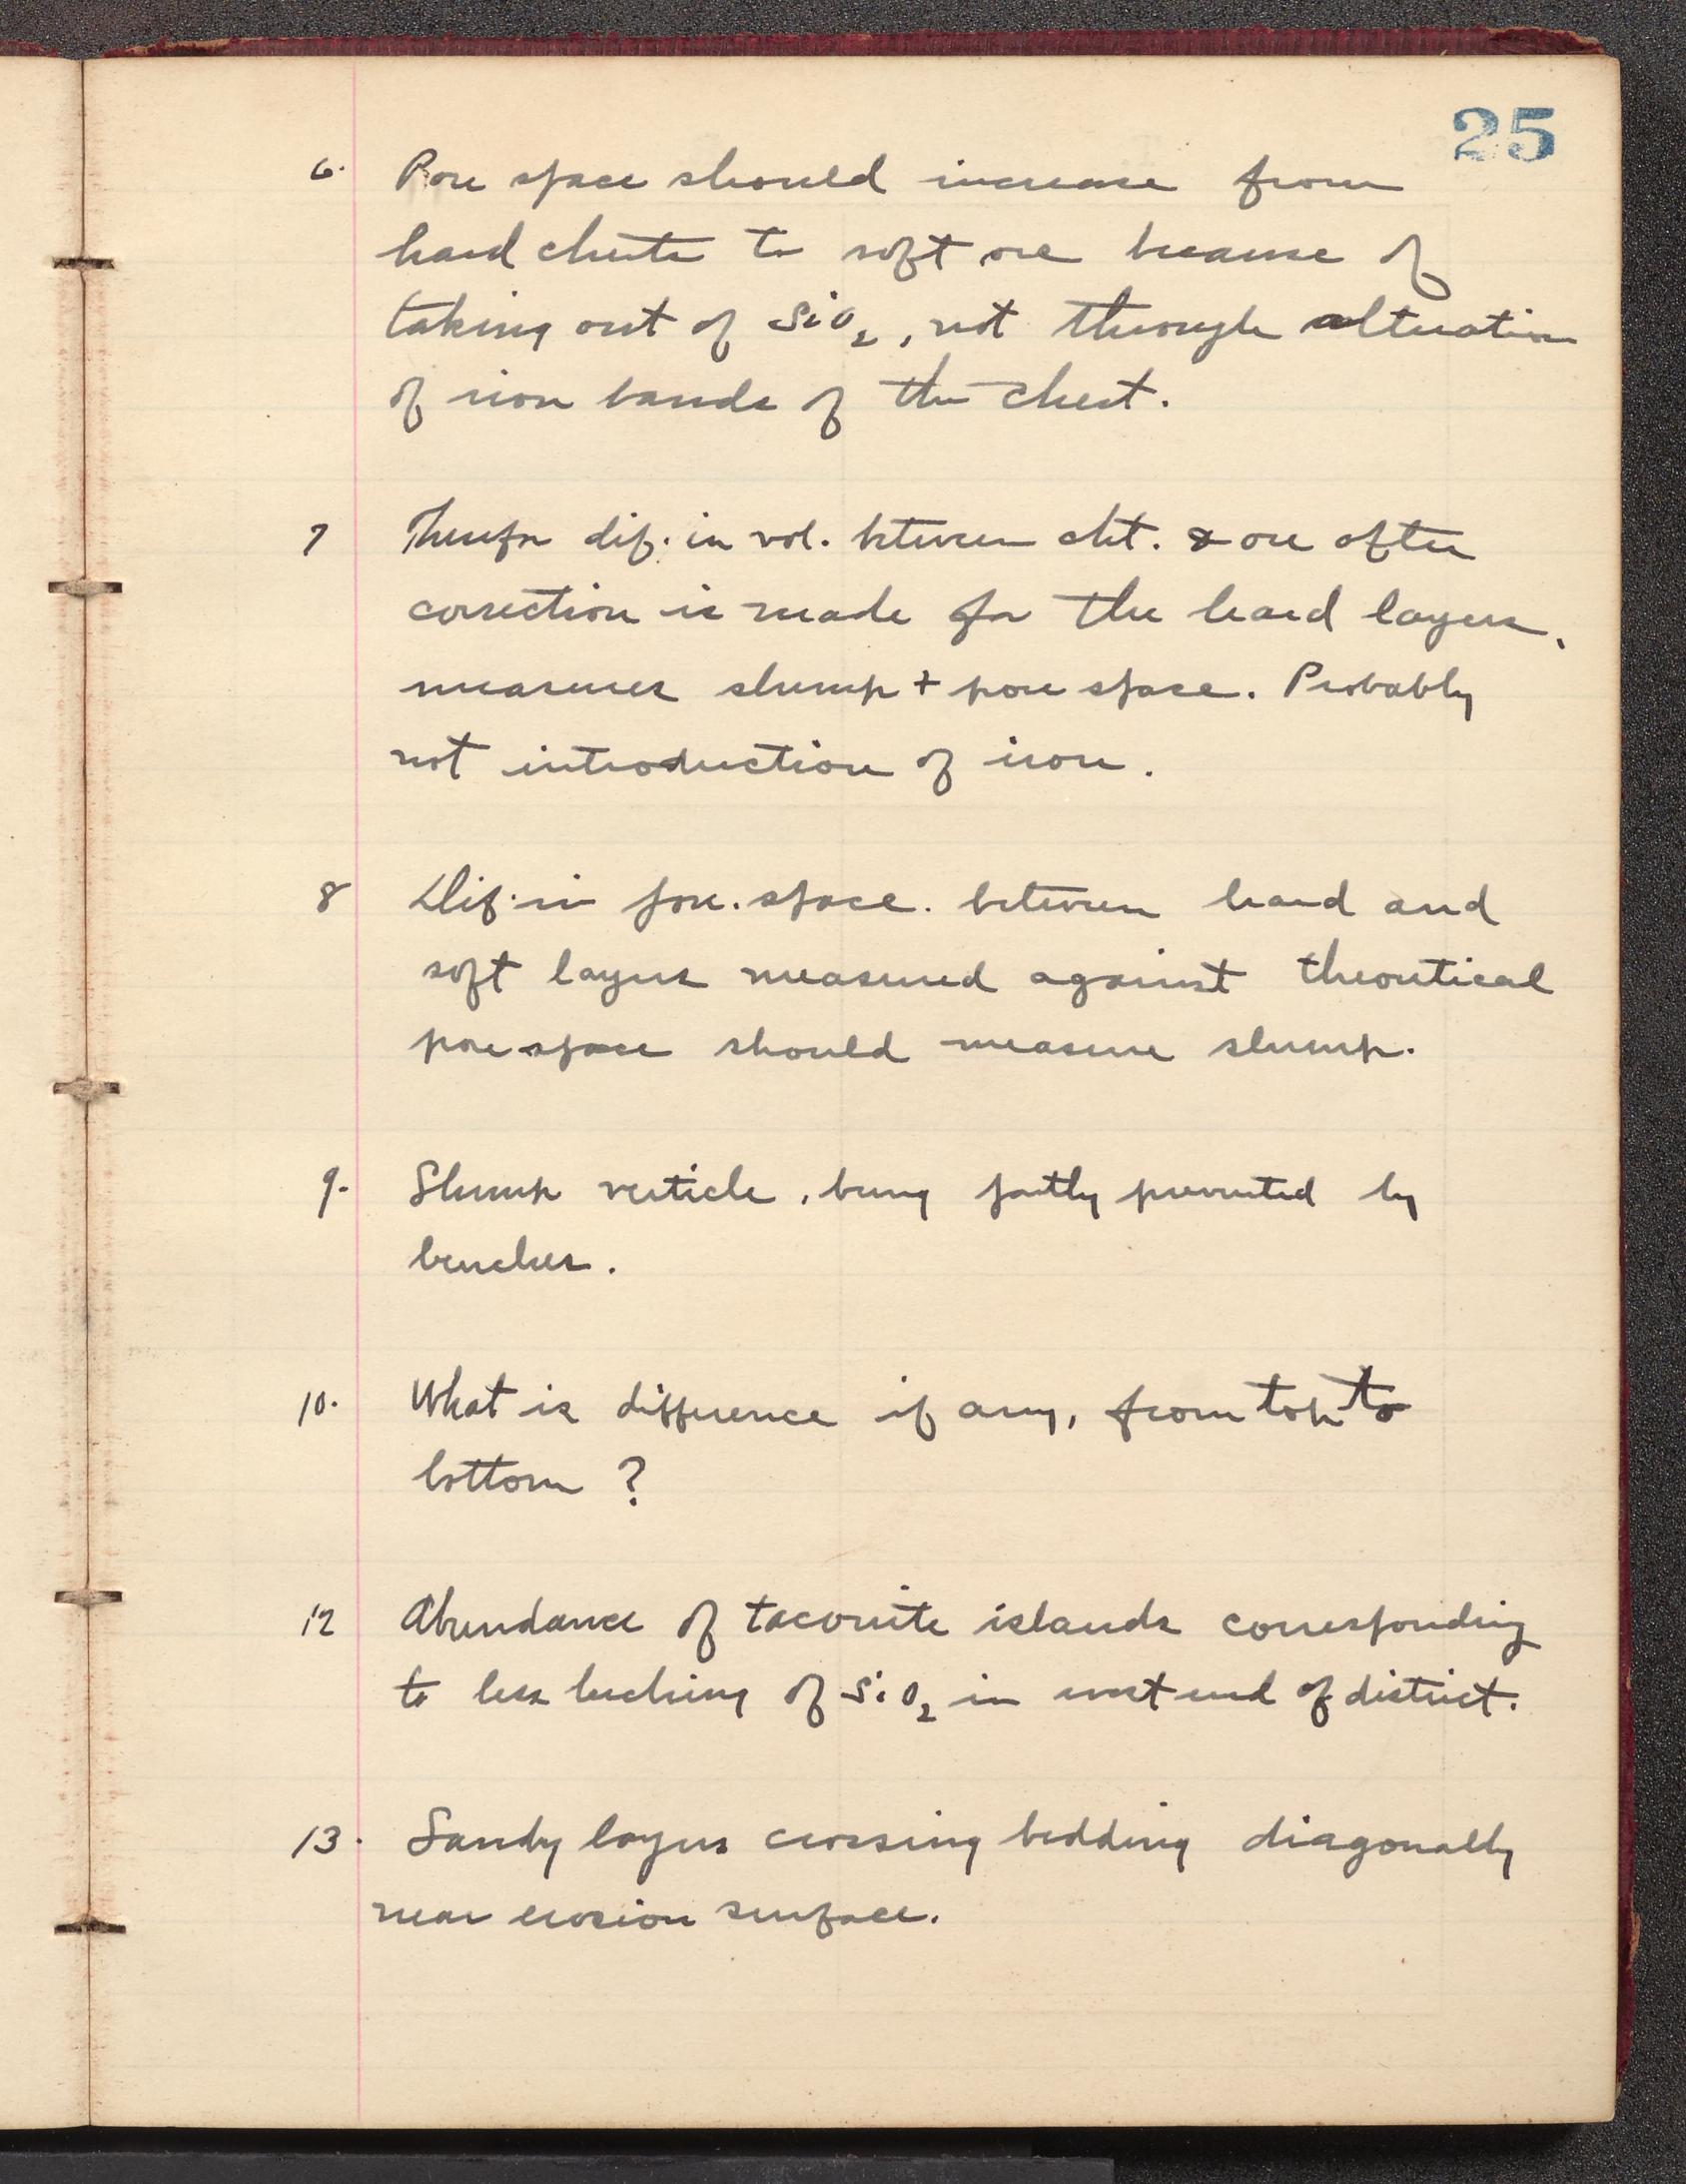 25
6. Pore space should increase from
hard cherts to soft ore because of
taking out of SiO2, not through alteration
of iron bands of the chert.
7 Therefor dif. in vol. between cht. & ore after
correction is made for the hard layers,
measures slump + pore space. Probably
not introduction of iron.
8 Dif. in pore. space. between hard and
soft layers measured against theoretical
pore space should measure slump.
9. Slump verticle, being partly prevented by
benches.
10. What is difference if any, from top to
bottom ?
12 Abundance of taconite islands corresponding
to less leaching of SiO2 in west end of district.
13. Sandy layers crossing bedding diagonally
near erosion surface.